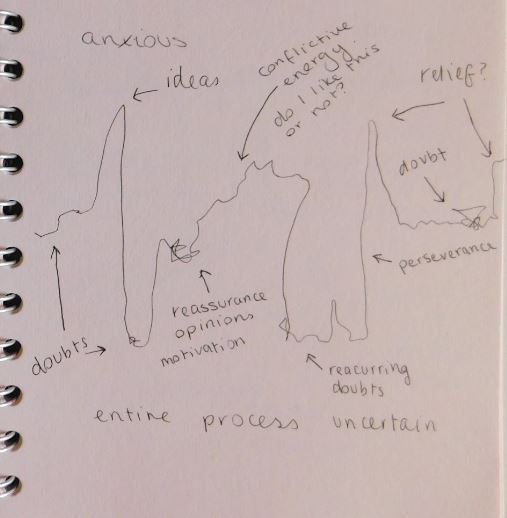 anxious
ideas
conflictive
energy
do I like this
or not?
relief?
doubt
perseverance
reassurance
opinions
motivation
doubts
reacurring
doubts
entire process uncertain